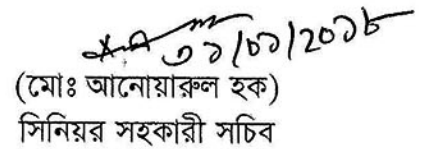 ৩১/০১/২০১৮
(মোঃ আনোয়ারুল হক)
সিনিয়র সহকারী সচিব